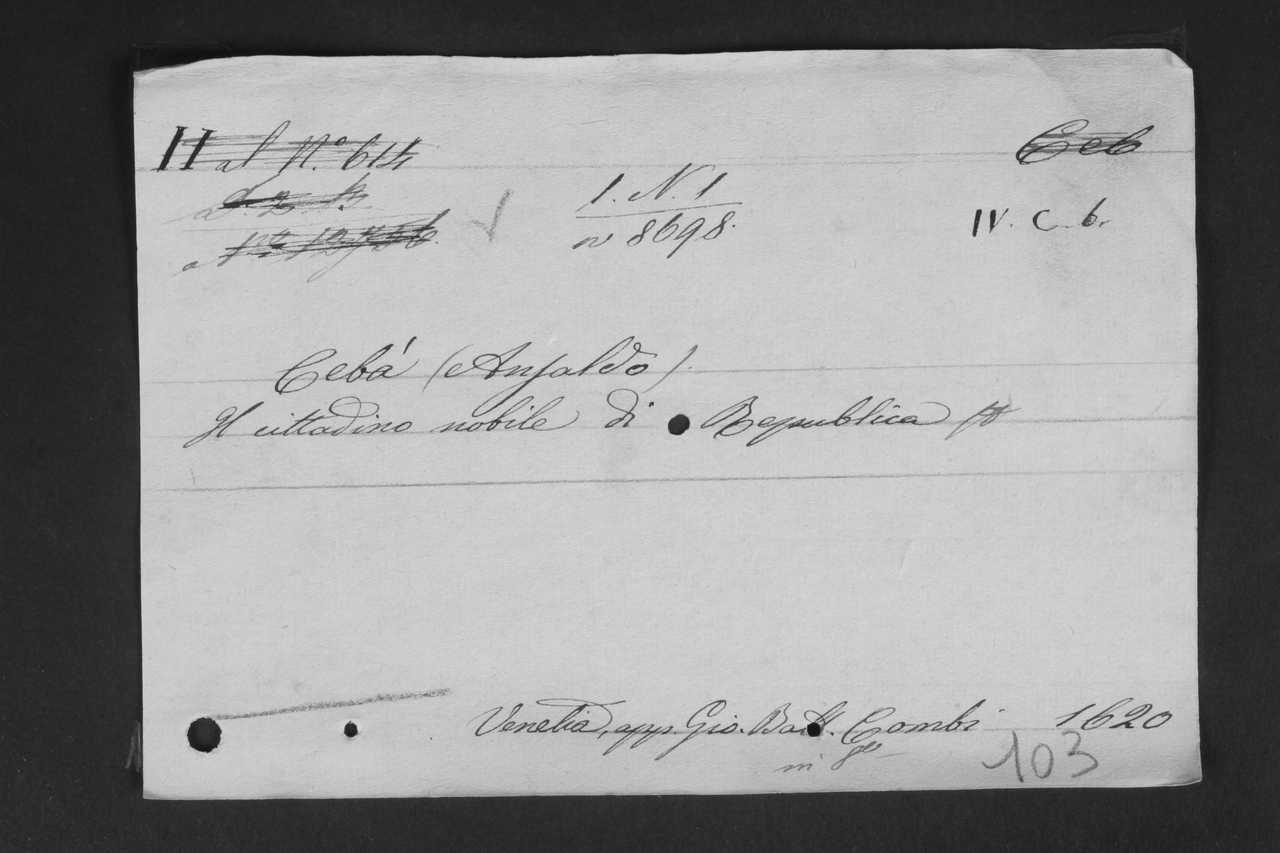 H al N.º 614 Ceb
1. N. 1
n 8698.
IV. C. 6.
Cebá (Ansaldo).
Il cittadino nobile di Republica
Venetia, app. Gio. Batt. Combi 1620
in 8º
103